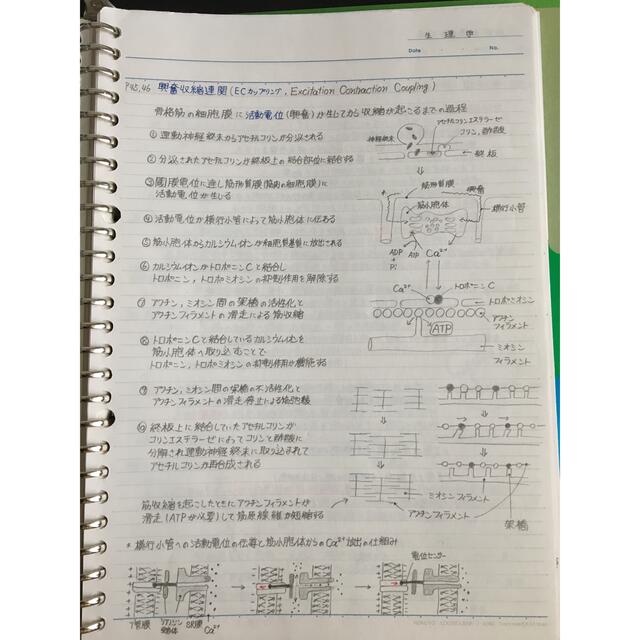 生理学
Date . . No.
P45,46 興奮収縮連関(ECカップリング, Excitation Contraction Coupling)
骨格筋の細胞膜に活動電位(興奮)が生じてから収縮が起こるまでの過程
① 運動神経終末からアセチルコリンが分泌される
② 分泌されたアセチルコリンが終板上の結合部位に結合する
③ 閾膜電位に達し筋形質膜(筋肉の細胞膜)に
活動電位が生じる
④ 活動電位が横行小管によって筋小胞体に伝わる
⑤ 筋小胞体からカルシウムイオンが細胞質基質に放出される
⑥ カルシウムイオンがトロポニンCと結合し
トロポニン,トロポミオシンの抑制作用を解除する
⑦ アクチン,ミオシン間の架橋の活性化と
アクチンフィラメントの滑走による筋収縮
⑧ トロポニンCと結合しているカルシウムイオンを
筋小胞体へ取り込むことで
トロポニン,トロポミオシンの抑制作用が機能する
⑨ アクチン,ミオシン間の架橋の不活性化と
アクチンフィラメントの滑走停止による筋弛緩
⑩ 終板上に結合していたアセチルコリンが
コリンエステラーゼによってコリンと酢酸に
分解され運動神経終末に取り込まれて
アセチルコリンが再合成される
筋収縮を起こしたときにアクチンフィラメントが
滑走(ATPが必要)して筋原線維が短縮する
* 横行小管への活動電位の伝導と筋小胞体からのCa²⁺放出の仕組み
アセチルコリンエステラーゼ
コリン,酢酸
神経終末
終板
筋形質膜
興奮
筋小胞体
横行小管
ADP
+
Pi
ATP
Ca²⁺
Ca²⁺
トロポニンC
トロポミオシン
アクチン
フィラメント
ATP
ミオシン
フィラメント
ミオシンフィラメント
アクチンフィラメント
架橋
電位センサー
T管膜
SR膜
Ca²⁺